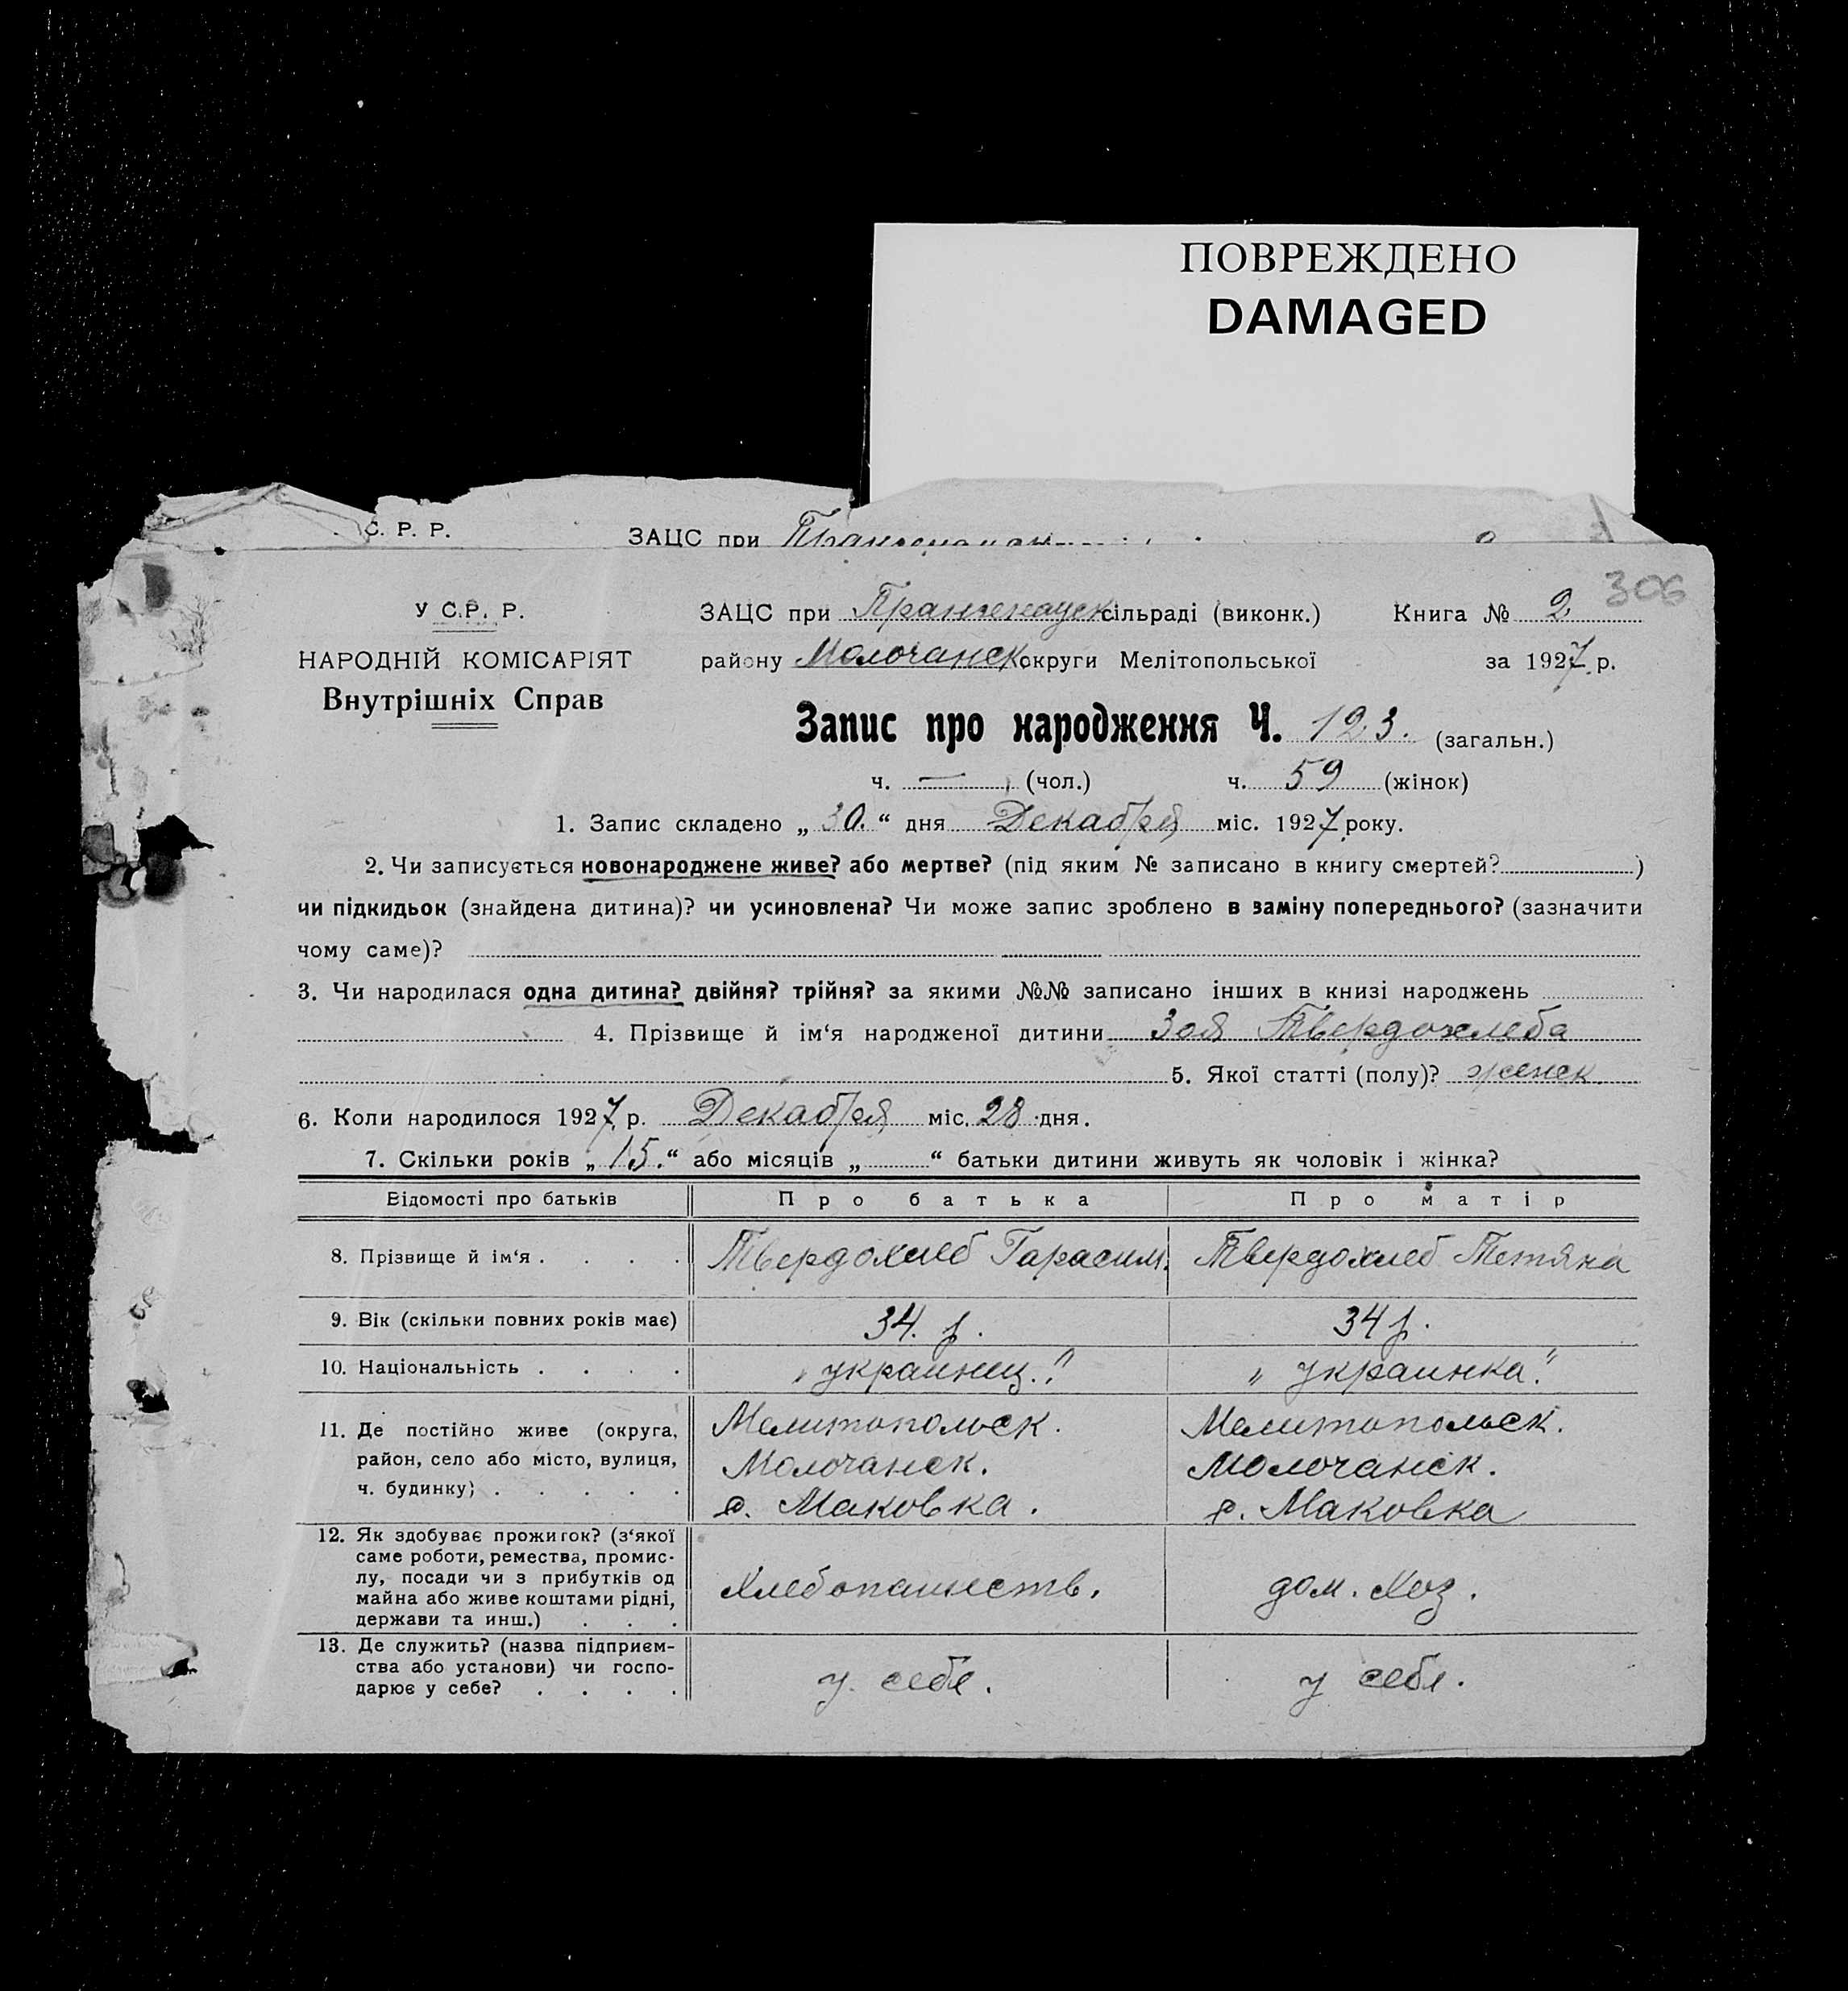 ПОВРЕЖДЕНО
DAMAGED
С. Р. Р. ЗАЦС при
306
У С.Р. Р. ЗАЦС при Пранженауск сільраді (виконк.) Книга № 2
НАРОДНІЙ КОМІСАРІЯТ району Молочанск округи Мелітопольської за 1927 р.
Внутрішніх Справ
Запис про народження Ч. 123. (загальн.)
ч. — (чол.) ч. 59 (жінок)
1. Запис складено „ 30. “ дня Декабря міс. 1927 року.
2. Чи записується новонароджене живе? або мертве? (під яким № записано в книгу смертей? )
чи підкидьок (знайдена дитина)? чи усиновлена? Чи може запис зроблено в заміну попереднього? (зазначити
чому саме)?
3. Чи народилася одна дитина? двійня? трійня? за якими №№ записано інших в книзі народжень
4. Прізвище й ім‘я народженої дитини Зоя Твердохлеба
5. Якої статті (полу)? женск.
6. Коли народилося 1927 р. Декабря міс. 28 дня.
7. Скільки років „ 15. “ або місяців „ “ батьки дитини живуть як чоловік і жінка?
Відомості про батьків Про батька Про матір
8. Прізвище й ім‘я . . . . Твердохлеб Гарасим. Твердохлеб Тетяна
9. Вік (скільки повних років має) 34. р. 34 р.
10. Національність . . . . „ украинец.“ „ украинка.“
11. Де постійно живе (округа, Мелитопольск. Мелитопольск.
район, село або місто, вулиця, Молочанск. Молочанск.
ч. будинку) . . . . . с. Маковка. с. Маковка
12. Як здобуває прожиток? (з‘якої
саме роботи, ремества, промис-
лу, посади чи з прибутків од Хлебопашеств. дом. хоз.
майна або живе коштами рідні,
держави та инш.) . . .
13. Де служить? (назва підприєм-
ства або установи) чи госпо- у себе. у себе.
дарює у себе? . . . .